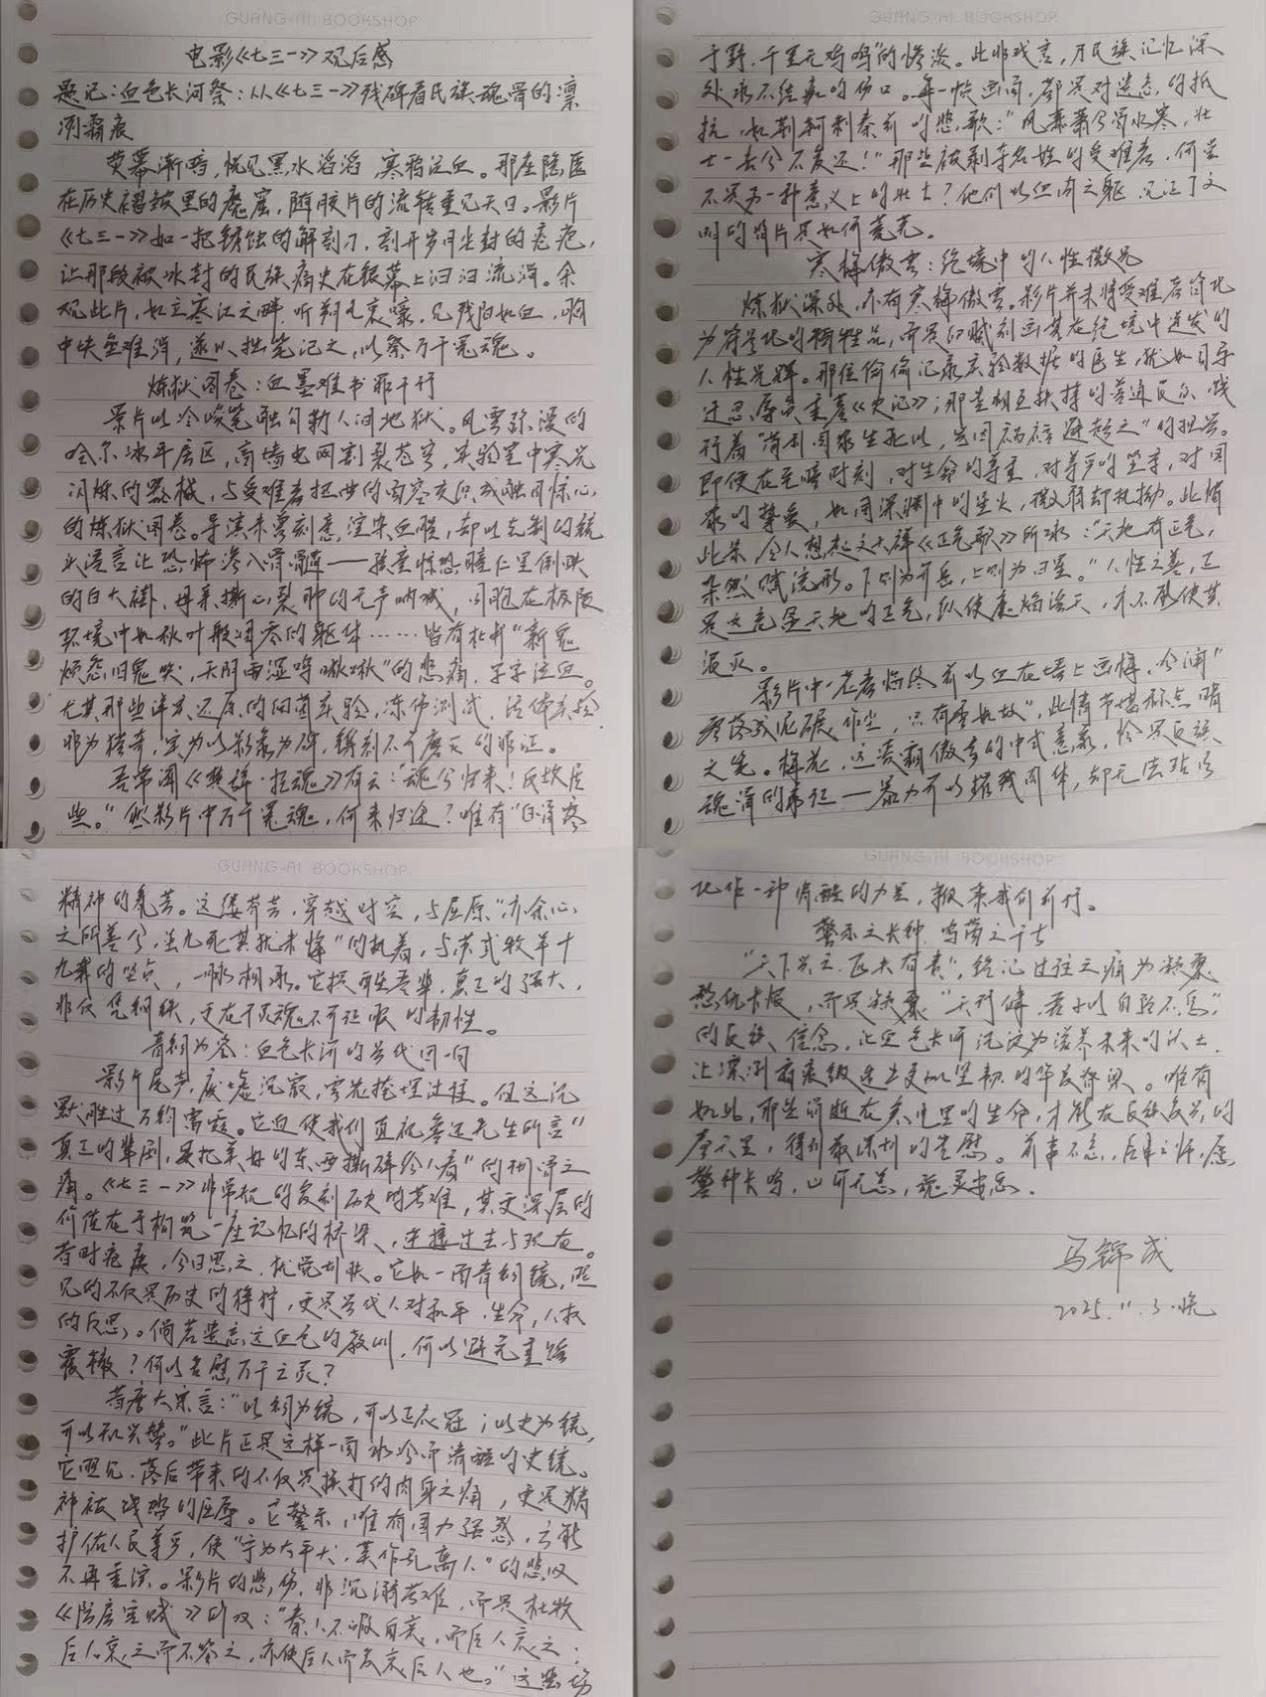 GUANG-AI BOOKSHOP
电影《七三一》观后感
题记：血色长河祭：从《七三一》残碑看民族魂骨的凛
冽霜痕
荧幕渐暗，恍见黑水滔滔，寒鸦泣血。那座隐匿
在历史褶皱里的魔窟，随胶片的流转重见天日。影片
《七三一》如一把锈蚀的解剖刀，剖开岁月尘封的疮疤，
让那段被冰封的民族痛史在银幕上汩汩流淌。余
观此片，如立寒江之畔，听朔风哀嚎，见残阳如血，胸
中块垒难消，遂以拙笔记之，以祭万千冤魂。
炼狱图卷：血墨难书罪千行
影片以冷峻笔触勾勒人间地狱。风雪弥漫的
哈尔滨平房区，高墙电网割裂苍穹，实验室中寒光
闪烁的器械，与受难者绝望的面容交织成触目惊心
的炼狱图卷。导演未曾刻意渲染血腥，却以克制的镜
头语言让恐怖渗入骨髓——孩童惊恐瞳仁里倒映
的白大褂，母亲撕心裂肺的无声呐喊，同胞在极限
环境中如秋叶般凋零的躯体……皆有杜甫“新鬼
烦怨旧鬼哭，天阴雨湿声啾啾”的悲痛，字字泣血。
尤其那些详实还原的细菌实验，冻伤测试，活体实验，
非为猎奇，实为以影像为碑，镌刻不可磨灭的罪证。
吾常闻《楚辞·招魂》有云：“魂兮归来！反故居
些。”然影片中万千冤魂，何来归途？唯有“白骨露
GUANG-AI BOOKSHOP
于野，千里无鸡鸣”的惨淡。此非戏言，乃民族记忆深
处永不结痂的伤口。每一帧画面，都是对遗忘的抵
抗，如荆轲刺秦前的悲歌：“风萧萧兮易水寒，壮
士一去兮不复还！”那些被剥夺名姓的受难者，何尝
不是另一种意义上的壮士？他们以血肉之躯，见证了文
明的背片是如何荒芜。
寒梅傲雪：绝境中的人性微光
炼狱深处，亦有寒梅傲雪。影片并未将受难者简化
为符号化的牺牲品，而是细腻刻画其在绝境中迸发的
人性光辉。那位偷偷记录实验数据的医生，犹如司马
迁忍辱负重著《史记》；那些相互扶持的普通民众，践
行着“苟利国家生死以，岂因祸福避趋之”的担当。
即便在至暗时刻，对生命的尊重，对尊严的坚守，对国
家的挚爱，如同深渊中的星火，微弱却执拗。此情
此景，令人想起文天祥《正气歌》所咏：“天地有正气，
杂然赋流形。下则为河岳，上则为日星。”人性之善，正
是这充盈天地的正气，纵使魔焰滔天，亦不能使其
泯灭。
影片中一老者临终前以血在墙上画梅，令闻“
零落成泥碾作尘，只有香如故”，此情节堪称点睛
之笔。梅花，这凌霜傲雪的中式意象，恰是民族
魂骨的象征——暴力可以摧残肉体，却无法玷污
GUANG-AI BOOKSHOP
精神的芬芳。这缕芬芳，穿越时空，与屈原“亦余心
之所善兮，虽九死其犹未悔”的执着，与苏武牧羊十
九载的坚贞，一脉相承。它提醒吾辈，真正的强大，
非仅凭钢铁，更在于灵魂不可征服的韧性。
青铜为鉴：血色长河的当代回响
影片尾声，废墟沉寂，雪花掩埋过往。但这沉
默胜过万钧雷霆。它迫使我们直视鲁迅先生所言“
真正的悲剧，是把美好的东西撕碎给人看”的彻骨之
痛。《七三一》非单纯的复刻历史的苦难，其更深层的
价值在于构筑一座记忆的桥梁，连接过去与现在。
昔时疮痍，今日思之，犹觉切肤。它如一面青铜镜，照
见的不仅是历史的狰狞，更是当代人对和平、生命、人权
的反思。倘若遗忘这血色的教训，何以避免重蹈
覆辙？何以告慰万千之灵？
昔唐太宗言：“以铜为镜，可以正衣冠；以史为镜，
可以知兴替。”此片正是这样一面冰冷而清醒的史镜。
它照见，落后带来的不仅是挨打的肉身之痛，更是精
神被践踏的屈辱。它警示，唯有国力强盛，方能
护佑人民尊严，使“宁为太平犬，莫作乱离人”的悲叹
不再重演。影片的悲伤，非沉溺苦难，而是杜牧
《阿房宫赋》的叹：“秦人不暇自哀，而后人哀之；
后人哀之而不鉴之，亦使后人而复哀后人也。”这悲怆
GUANG-AI BOOKSHOP
化作一种清醒的力量，鞭策我们前行。
警示之长钟，鸣荡之千古
“天下兴亡，匹夫有责”，铭记过往之痛为凝聚
愁仇本报，而是凝聚“天行健，君子以自强不息”
的民族信念，让血色长河沉淀为滋养未来的沃土，
让凛冽霜痕锻造出更加坚韧的华夏脊梁。唯有
如此，那些消逝在炎凡里的生命，才能在民族复兴的
春天里，得到最深切的告慰。前事不忘，后事之师，愿
警钟长鸣，山河无恙，魂灵安息。
马锦成
2025.11.3.晚